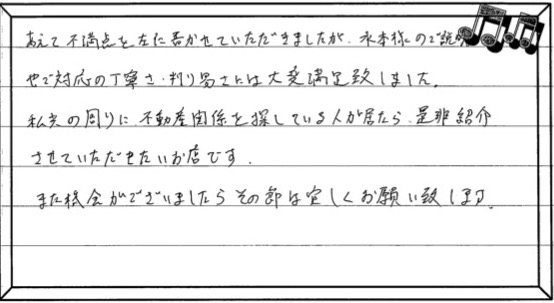 あえて不満点を左に書かせていただきましたが、水本様のご説明
やご対応の丁寧さ・判り易さには大変満足致しました。
私共の周りに、不動産関係を探している人が居たら、是非紹介
させていただきたいお店です。
また機会がございましたらその節は宜しくお願い致します。